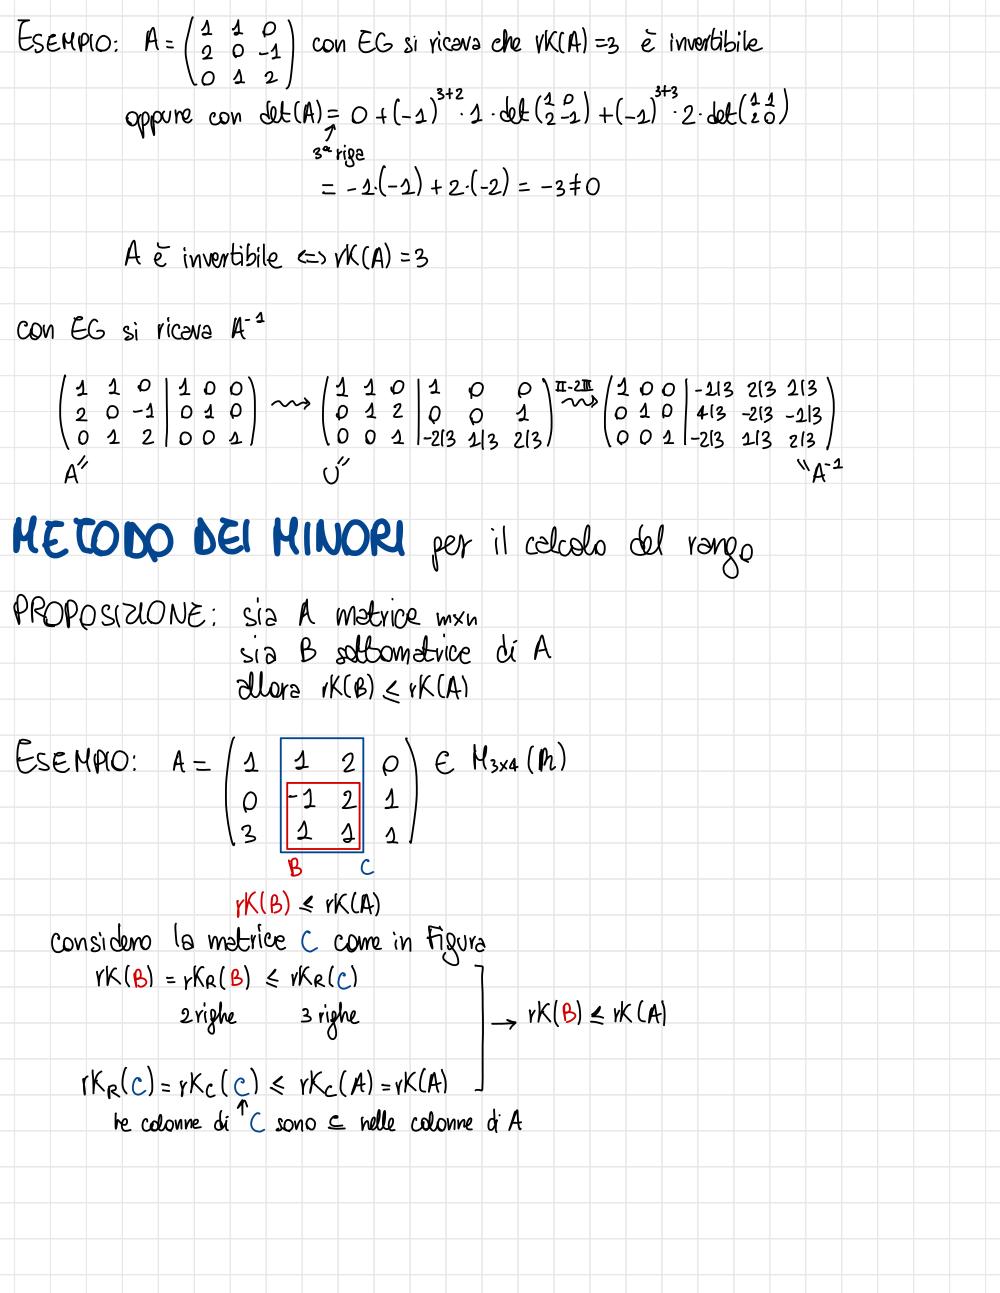 ESEMPIO: A = (1 1 0 / 2 0 -1 / 0 1 2) con EG si ricava che rK(A) = 3 è invertibile
oppure con det(A) = 0 + (-1)^3+2 · 1 · det(1 0 / 2 -1) + (-1)^3+3 · 2 · det(1 1 / 2 0)
↑
3ª riga
= -1·(-1) + 2·(-2) = -3 ≠ 0
A è invertibile <=> rK(A) = 3
con EG si ricava A^-1
(1 1 0 | 1 0 0 / 2 0 -1 | 0 1 0 / 0 1 2 | 0 0 1) ⇝ (1 1 0 | 1 0 0 / 0 1 2 | 0 0 1 / 0 0 1 | -2/3 1/3 2/3) II-2III ⇝ (1 0 0 | -1/3 2/3 1/3 / 0 1 0 | 4/3 -2/3 -1/3 / 0 0 1 | -2/3 1/3 2/3)
A" U" "A^-1
METODO DEI MINORI per il calcolo del rango
PROPOSIZIONE: sia A matrice mxn
sia B sottomatrice di A
allora rK(B) ≤ rK(A)
ESEMPIO: A = (1 1 2 0 / 0 -1 2 1 / 3 1 1 1) ∈ M3x4 (R)
B C
rK(B) ≤ rK(A)
considero la matrice C come in Figura
rK(B) = rKR(B) ≤ rKR(C)
2 righe 3 righe
→ rK(B) ≤ rK(A)
rKR(C) = rKC(C) ≤ rKC(A) = rK(A)
↑
le colonne di C sono ⊆ nelle colonne di A